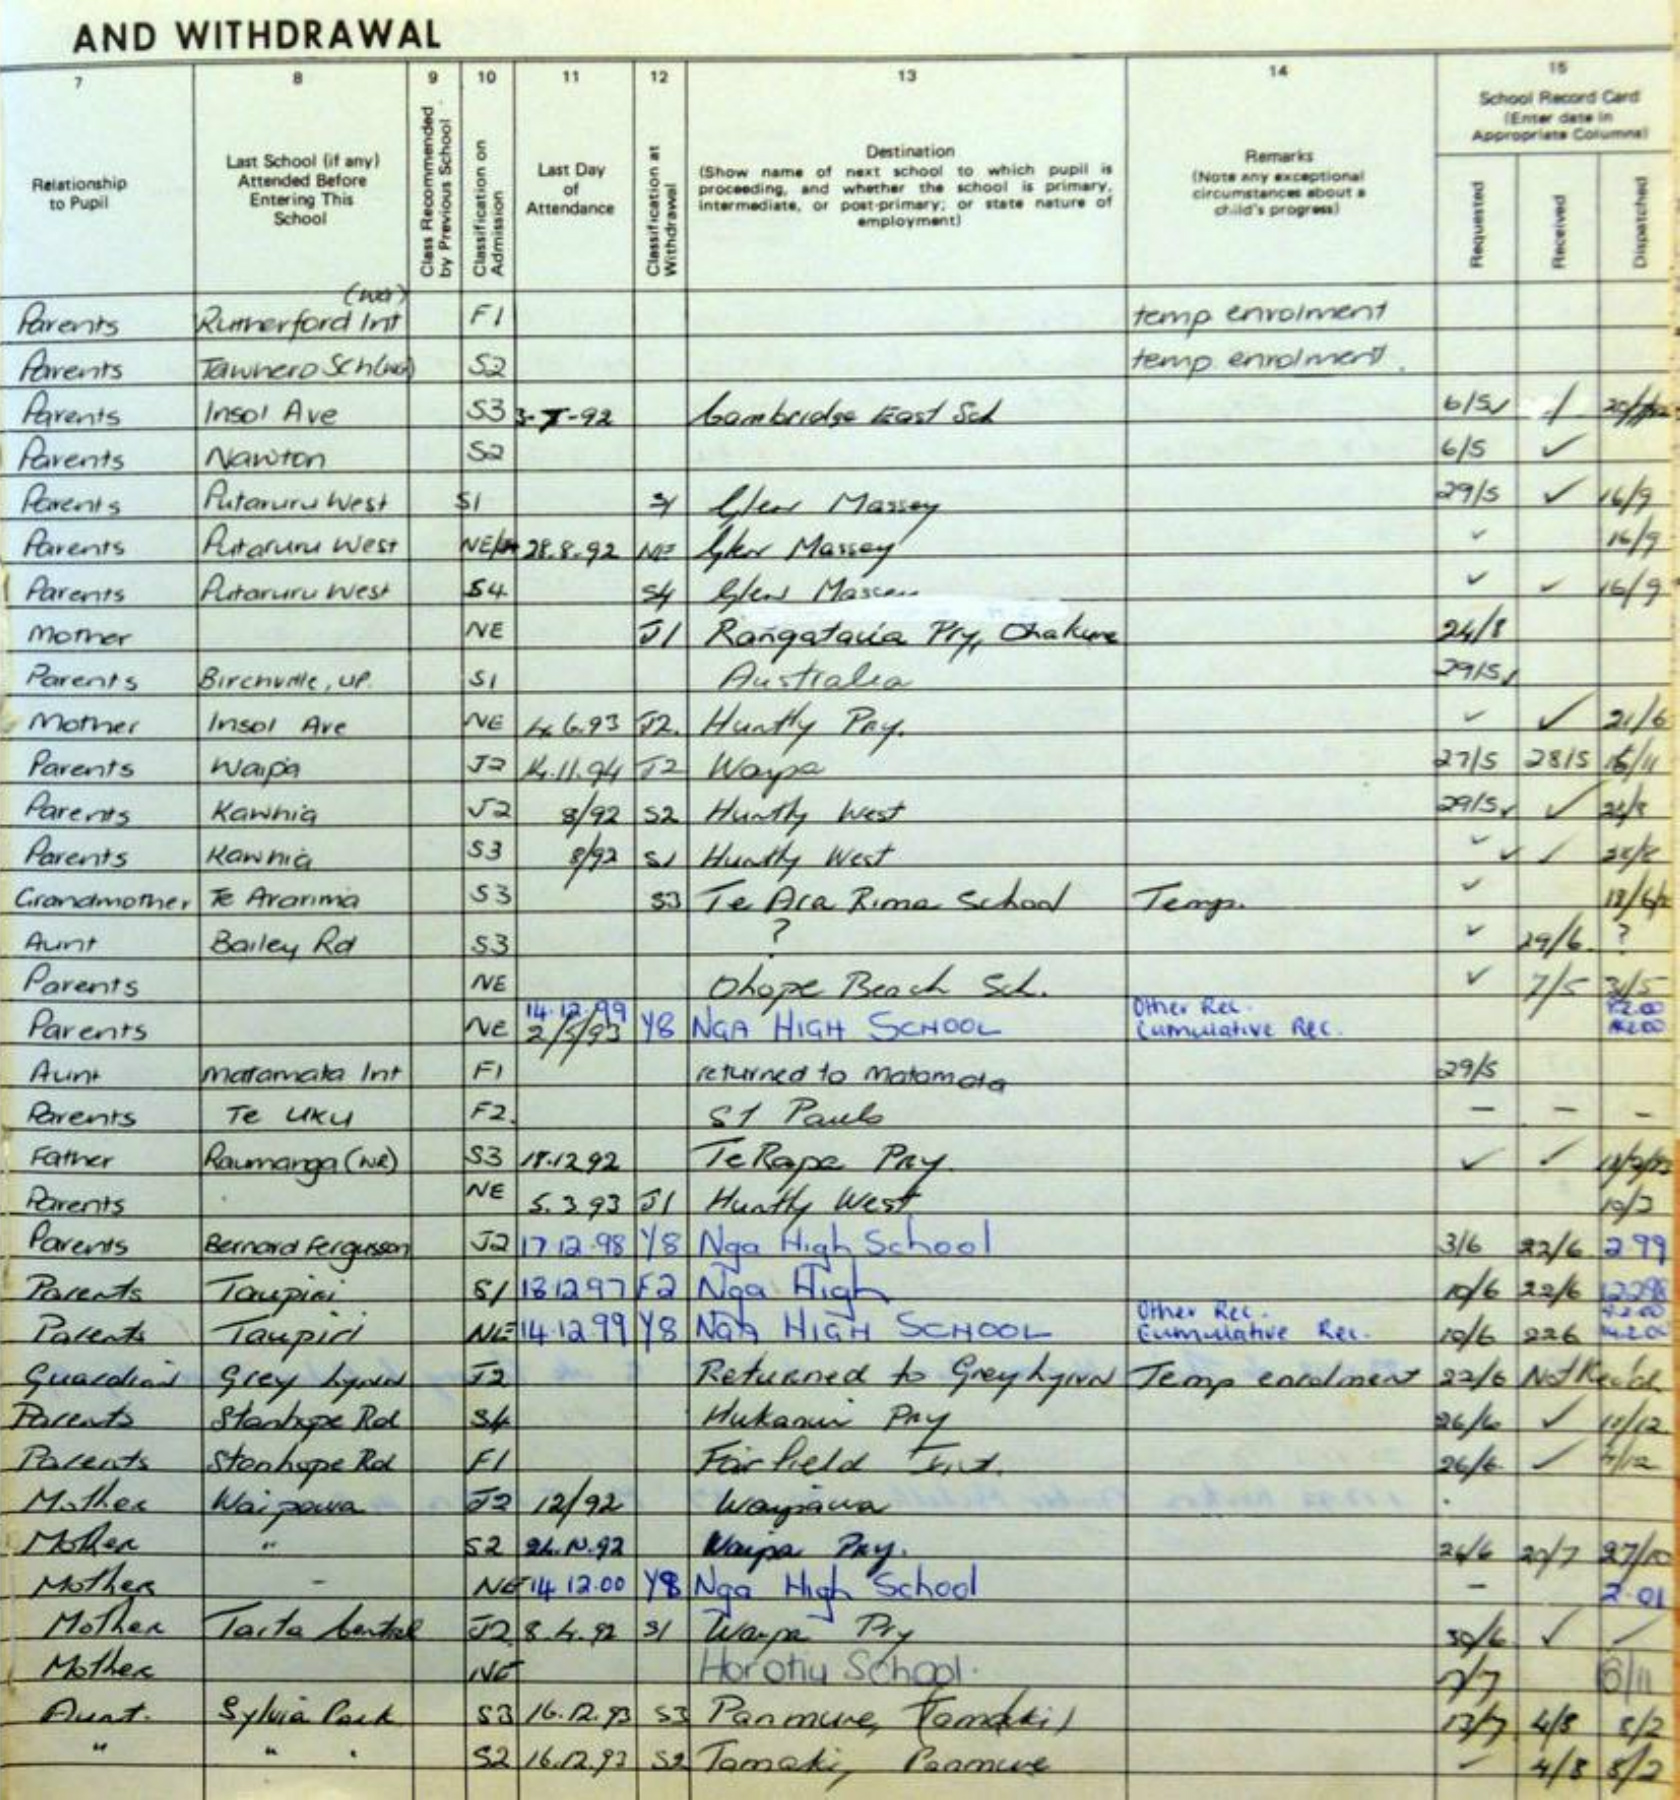 AND WITHDRAWAL
7 8 9 10 11 12 13 14 15
Relationship to Pupil
Last School (if any) Attended Before Entering This School
Class Recommended by Previous School
Classification on Admission
Last Day of Attendance
Classification at Withdrawal
Destination
(Show name of next school to which pupil is proceeding, and whether the school is primary, intermediate, or post-primary; or state nature of employment)
Remarks
(Note any exceptional circumstances about a child's progress)
School Record Card
(Enter date in Appropriate Columns)
Requested Received Dispatched
Parents Rutherford Int F1 temp enrolment
Parents S2 temp enrolment
Parents Insol Ave S3 Cambridge East Sch 6/5
Parents Nawton S2 6/5 ✓
Parents Putaruru West S1 Glen Massey 29/5 ✓ 16/9
Parents Putaruru West 28.8.92 NE Glen Massey ✓ 16/9
Parents Putaruru West S4 S4 Glen ✓ ✓ 16/9
Mother NE J1 Rangataua Pry, Ohakune 24/8
Parents S1 Australia 29/5
Mother Insol Ave NE 4.6.93 J2. Huntly Pry. ✓ ✓ 21/6
Parents Waipa J2 J2 Waipa 27/5 28/5
Parents Kawhia J2 8/92 S2 Huntly West 29/5 ✓
Parents Kawhia S3 8/92 S1 Huntly West ✓ ✓ ✓
Grandmother Te Ararima S3 S3 Te Ara Rima School Temp. ✓
Aunt Bailey Rd S3 ? ✓ 29/6. ?
Parents NE Ohope Beach Sch. ✓ 7/5
14.12.99 Other Rec.
Parents NE 2/5/93 Y8 NGA HIGH SCHOOL Cumulative Rec.
Aunt Matamata Int F1 returned to Matamata 29/5
Parents Te UKU F2. St Pauls - - -
Father Raumanga (WR) S3 18.12.92 Te Rapa Pry. ✓ ✓
Parents NE 5.3.93 J1 Huntly West
Parents Bernard Fergusson J2 17.12.98 Y8 Nga High School 3/6 22/6 2.99
Parents Taupiri S1 F2 Nga High 10/6 22/6
Other Rec.
Parents Taupiri NE 14.12.99 Y8 NGA HIGH SCHOOL Cumulative Rec. 10/6 226
Guardian Grey Lynn J2 Returned to Grey Lynn Temp enrolment 22/6 Not Rec'd
Parents Stanhope Rd S4 Hukanui Pry 26/6 ✓
Parents Stanhope Rd F1 Fairfield Int. 26/6 ✓
Mother Waipawa J2 12/92 Waipawa
Mother " S2 Waipa Pry. 26/6 20/7 27/10
Mother - NE 14.12.00 Y8 Nga High School - 2.01
Mother Taita Central J2 S1 Waipa Pry 30/6 ✓
Mother NE Horotiu School. 7/7
Aunt. Sylvia Park S3 16.12.93 S3 Panmure, (Tamaki) 13/7 4/8 8/2
" " " S2 16.12.93 S2 Tamaki, Panmure 4/8 8/2